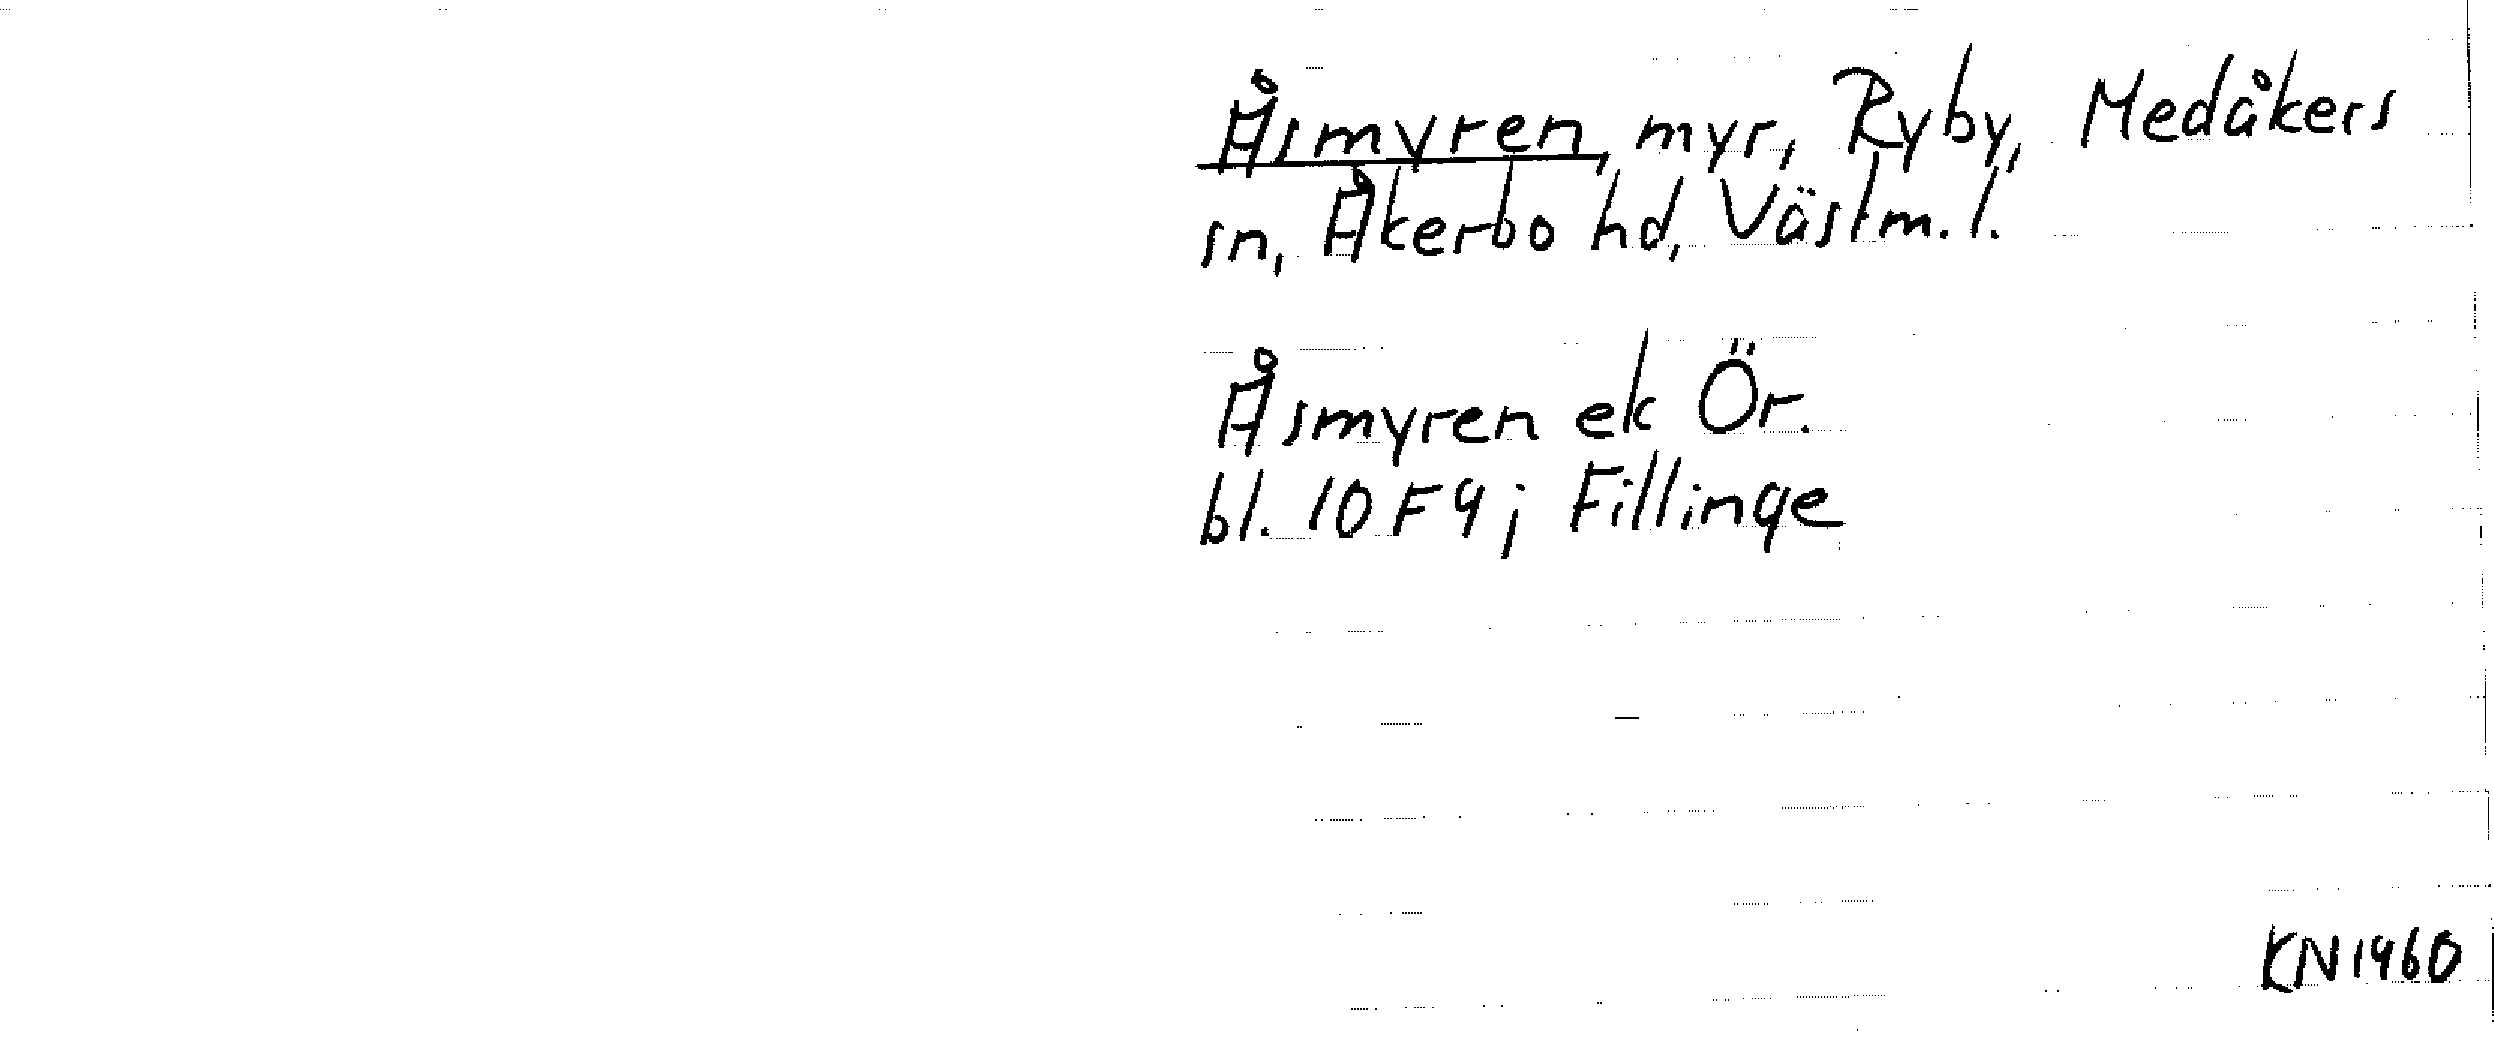 Åsmyren, myr, Ryby, Medåkers
sn, Åkerbo hd, Västm. l.
Åsmyren ek Ör.
bl. 10F9j Fillinge
KN1960